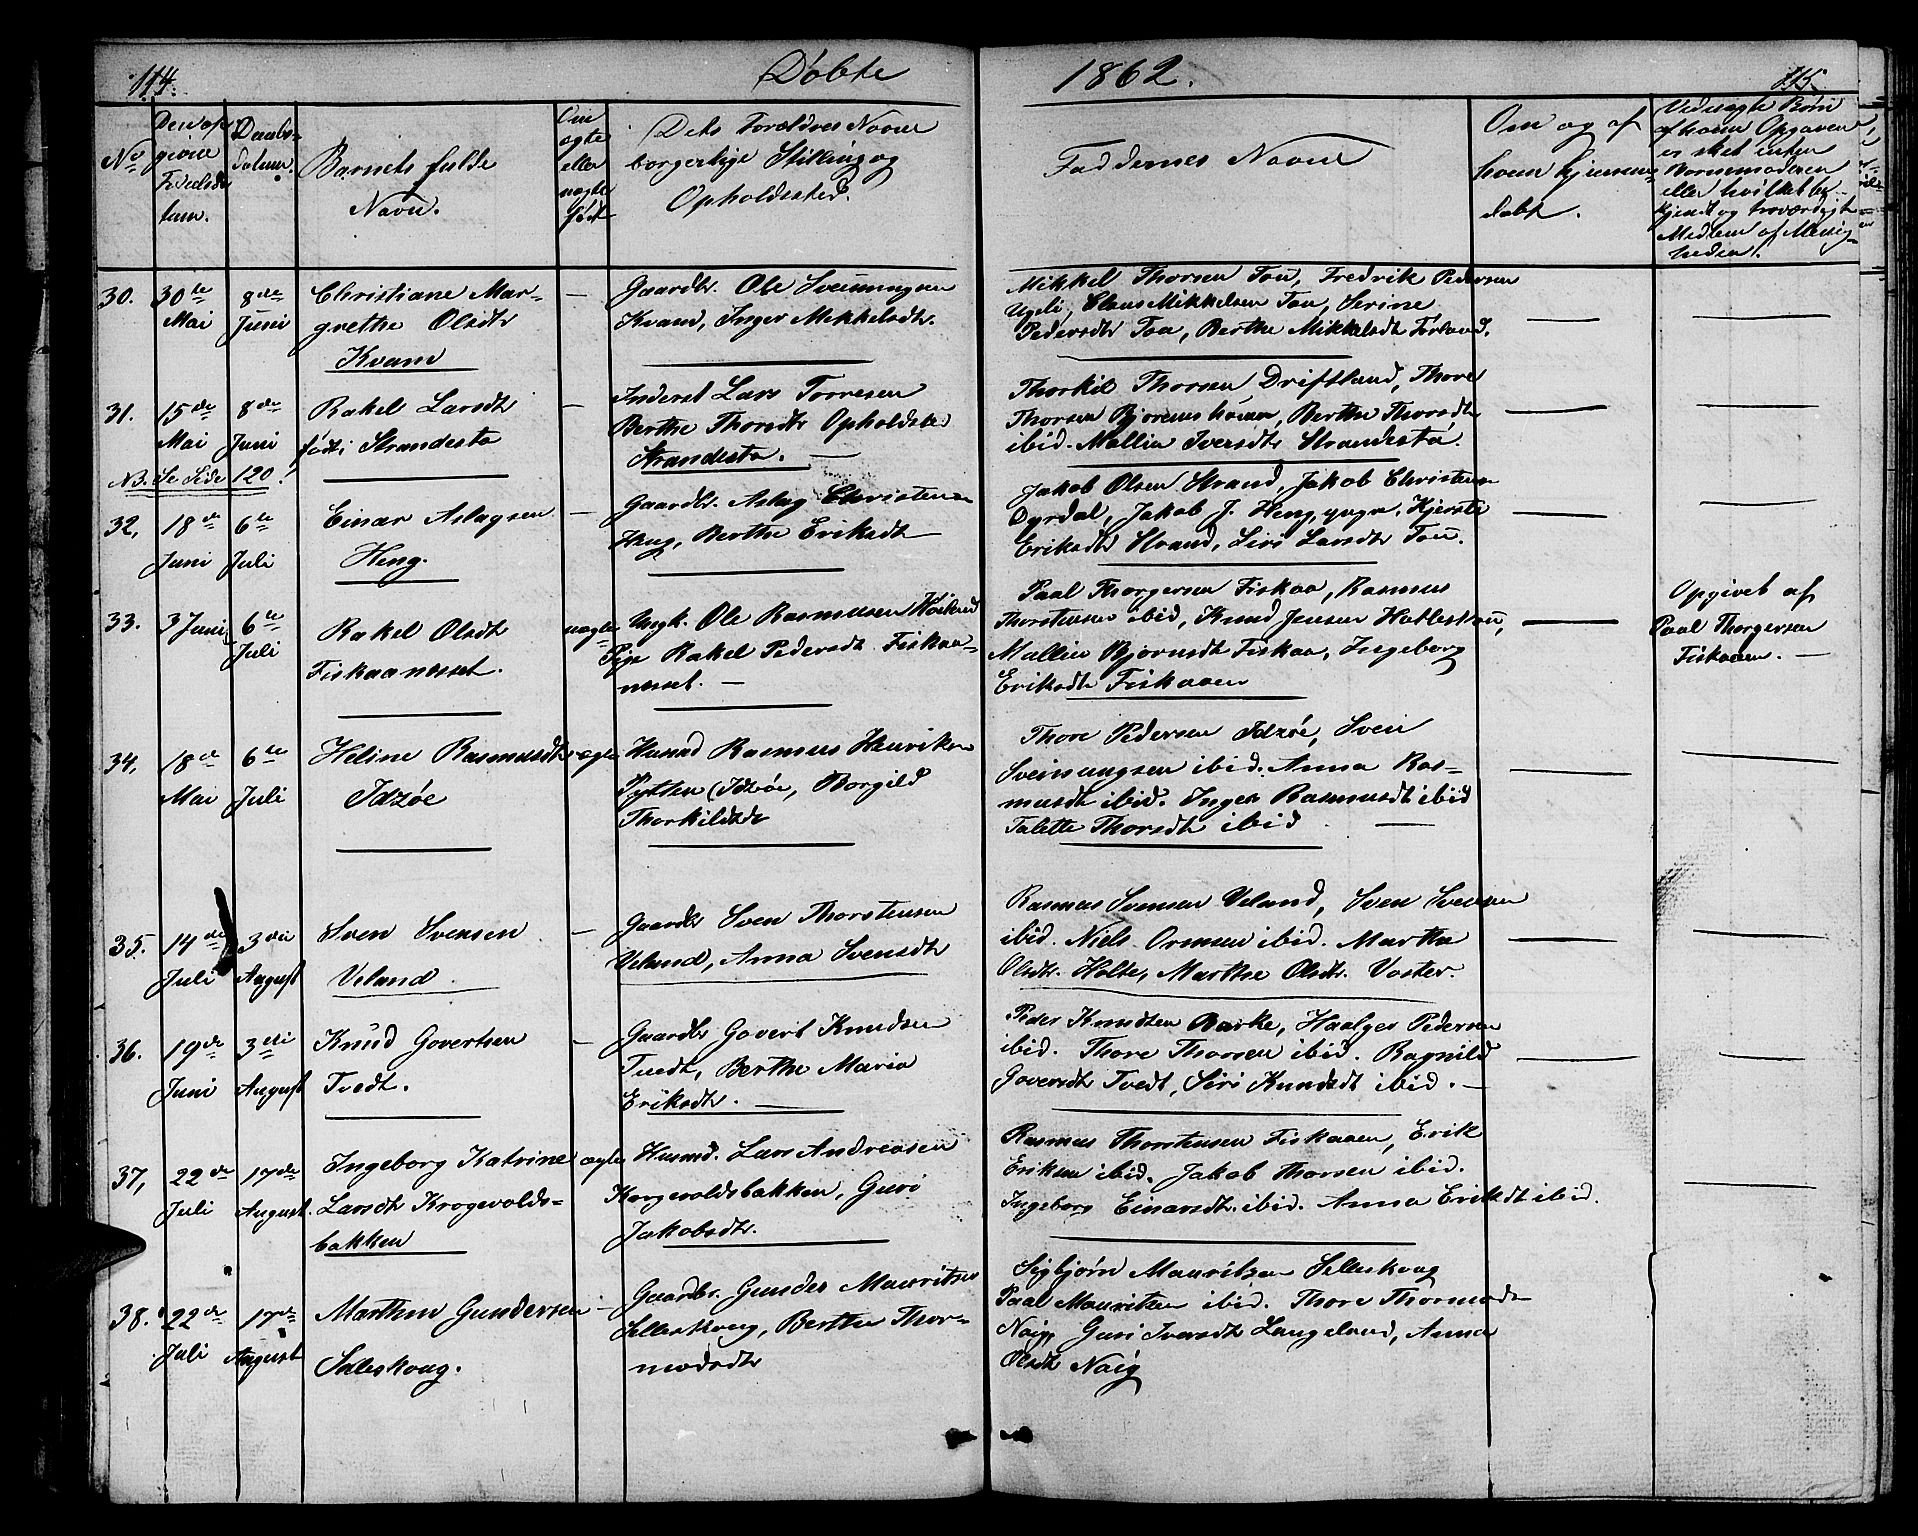 114.
Døbte
1862.
115.
No
Den op
givne
Fødselsda
tum.
Daabs-
datum.
Barnets fulde
Navn.
Om
ægte
eller
uægte
født
Dets Forældres Navne
borgerlige Stilling og
Opholdssted.
Faddernes Navne
Om og af
hvem hjemme-
døbt.
Veduægte Børn
af hvem Opgaven
er sket enten
Barnemoderen
eller hvilket be
kjendt og troværdigt
Medlem af Menig-
heden.
30.
30te
Mai
8de
Juni
Christiane Mar-
grethe Olsdtr
Kvam
Gaardbr. Ole Sveinungsen
Kvam, Inger Mikkelsdtr.
Mikkel Thorsen Tou, Fredrik Pedersen
Claus Mikkelsen Tou, Serine
Pedersdtr Tou, Berthe Mikkelsdtr Førland.
31.
15de
Mai
8de
Juni
Rakel Larsdtr
født i Strandestø
NB. Se Side 120!
Inderst Lars Torresen
Berthe Thorsdtr Opholdsted
Strandestø.
Thorkil Thorsen Driftland, Thore
Thorsen Bjørenshoien, Berthe Thorsdtr
ibid. Mallin Iversdtr Strandestø.
32,
18de
Juni
6te
Juli
Einar Aslagsen
Heng.
Gaardbr. Aslag Christensen
Heng, Berthe Eriksdtr
Jakob Olsen Strand, Jakob Christensen
Dyrdal, Jakob J. Heng, yngr, Kjersti
Eriksdtr Strand, Siri Larsdtr Tou.
33.
3 Juni
6te
Juli
Rakel Olsdtr
Fiskaanesset.
uægte
Ungk. Ole Rasmusen
Pige Rakel Pedersdt Fiskaa-
nesset.
Paal Thorgersen Fiskaa, Rasmus
Thorstensen ibid, Knud Jensen Hatleskou,
Mallin Bjørnsdt Fiskaa, Ingeborg
Eriksdtr Fiskaaen
Opgivet af
Paal Thorgersen
Fiskaaen.
34,
18de
Mai
6te
Juli
Heline Rasmusdtr
Idzøe
ægte
Husmd Rasmus Henriksen
Pytten (Idzøe, Borgild
Thorkildsdr
Thore Pedersen Idzøe, Sven
Sveinungsen ibid. Anna Ras-
musdt ibid. Inger Rasmusdt ibid
Talette Thorsdt ibid
35.
14de
Juli
3die
August
Sven Svensen
Veland
Gaardbr Sven Thorstensen
Veland, Anna Svensdtr
Rasmus Svensen Veland, Sven Svensen
ibid. Niels Ormsen ibid. Martha
Olsdtr. Holte, Marthe Olsdtr. Voster.
36.
19de
Juni
3die
August
Knud Govertsen
Tvedt.
Gaardbr Govert Knudsen
Tvedt, Berthe Maria
Eriksdtr.
Peder Knudsen Barke, Haalger Pedersen
ibid. Thore Thorsen ibid. Ragnild
Goversdtr Tvedt, Siri Knudsdt ibid.
37,
22de
Juli
17de
August
Ingeborg Katrine
Larsdtr Krogevolds-
bakken
ægte
Husmd. Lars Andreasen
Korgevoldsbakken, Guri
Jakobsdtr.
Rasmus Thorstensen Fiskaaen, Erik
Eriksen ibid. Jakob Thorsen ibid.
Ingeborg Einarsdtr. ibid. Anna Eriksdt ibid.
38.
22de
Juli
17de
August
Marthin Gundersen
Selleskoug.
Gaardbr. Gunder Mauritsen
Selleskoug, Berthe Thor-
modsdtr
Sigbjørn Mauritsen Selleskoug
Paal Mauritsen ibid. Thore Thormods
Noig, Guri Iversdtr Langeland, Anna
Olsdtr Noig